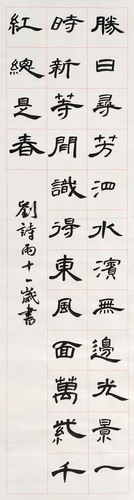 勝日尋芳泗水濱無邊光景一
時新等閒識得東風面萬紫千
紅總是春
劉詩雨十一歲書